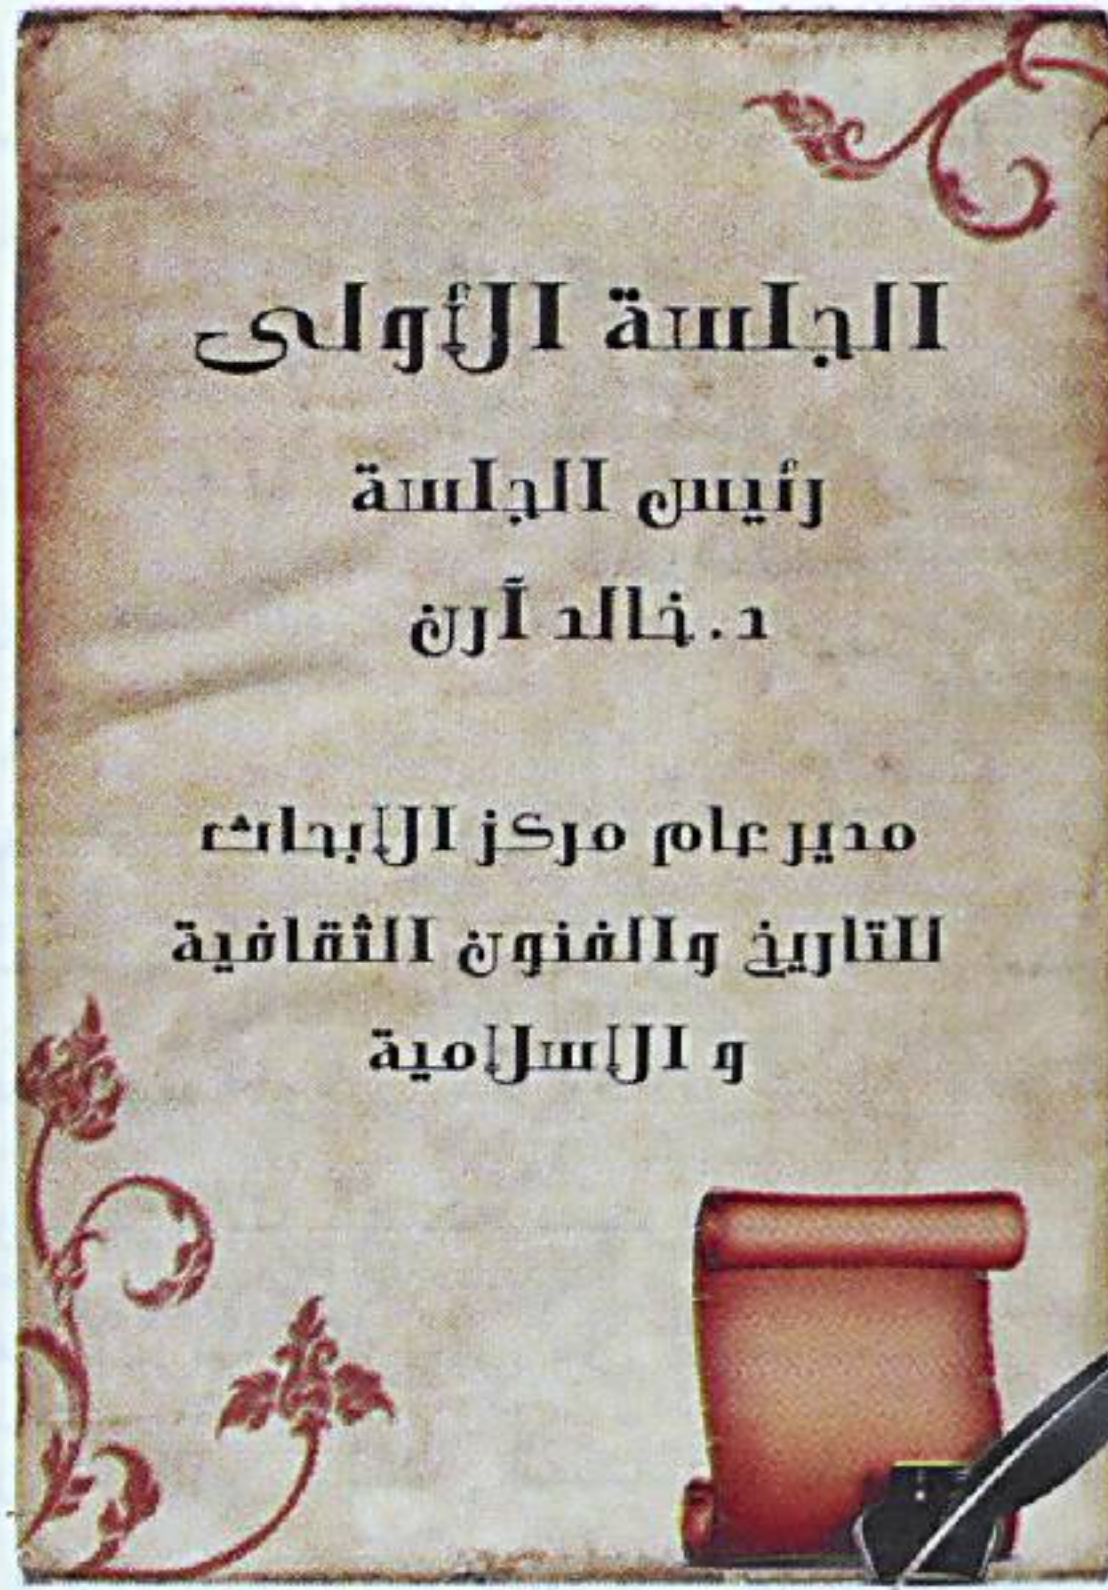 الجلسة الأولى
رئيس الجلسة
د.خالد آرن
مدير عام مركز الإبحاث
للتاريخ والفنون الثقافية
و الإسلامية